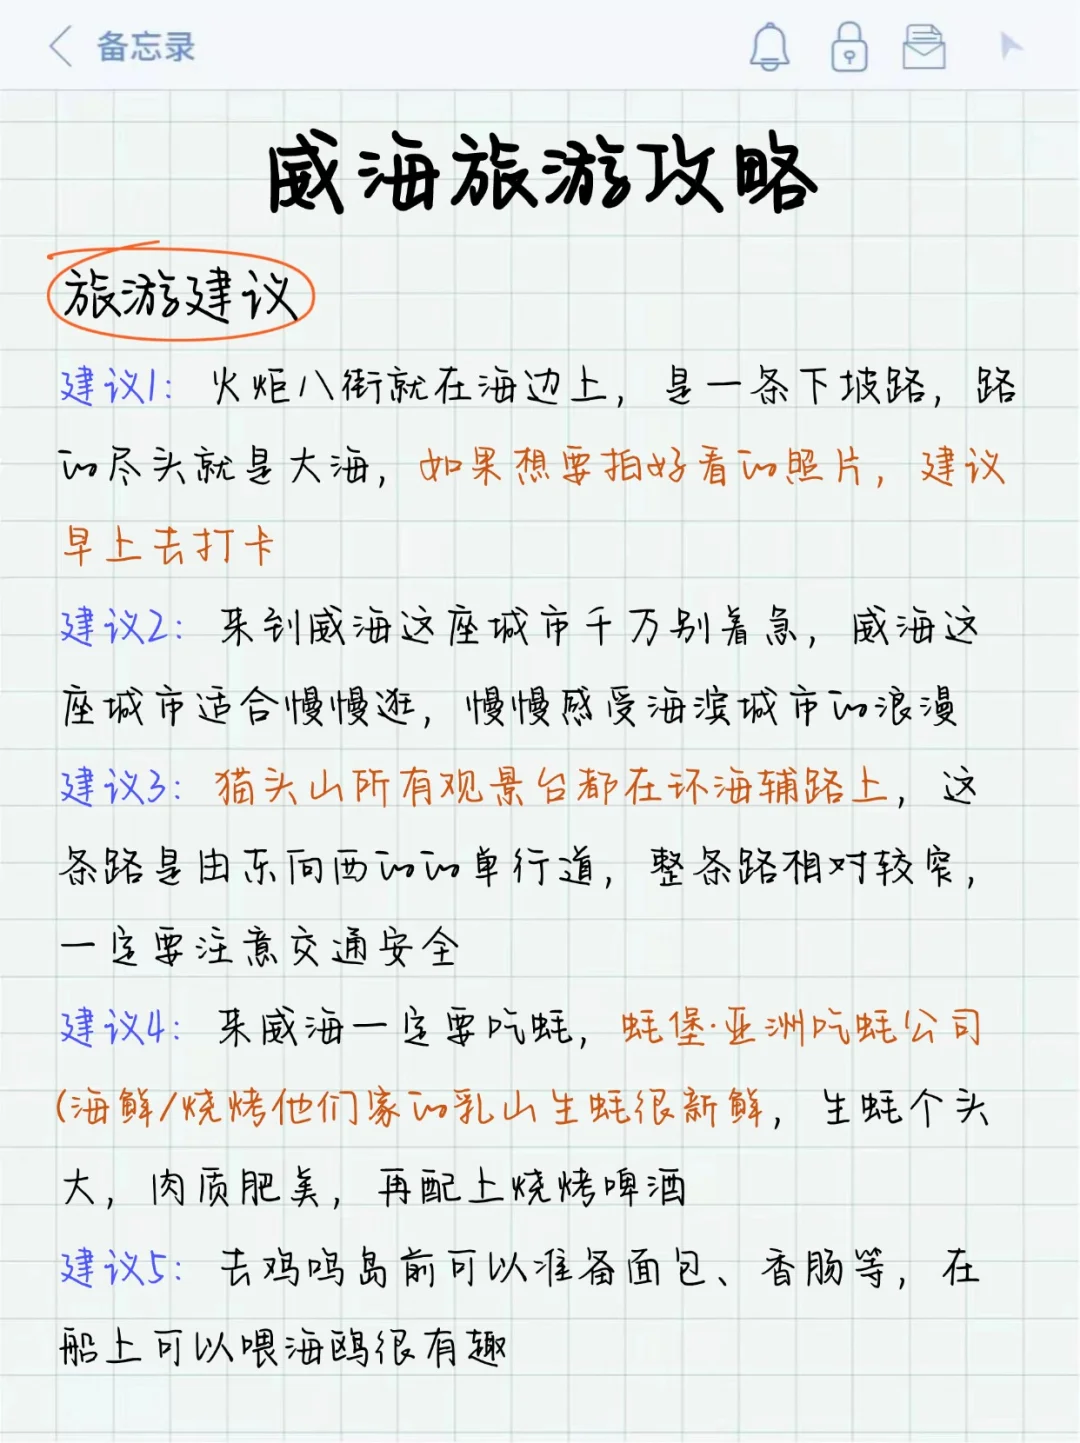 备忘录
威海旅游攻略
旅游建议
建议1: 火炬八街就在海边上，是一条下坡路，路
的尽头就是大海，如果想要拍好看的照片，建议
早上去打卡
建议2: 来到威海这座城市千万别着急，威海这
座城市适合慢慢逛，慢慢感受海滨城市的浪漫
建议3: 猫头山所有观景台都在环海辅路上，这
条路是由东向西的的单行道，整条路相对较窄，
一定要注意交通安全
建议4: 来威海一定要吃蚝，蚝堡·亚洲吃蚝公司
(海鲜/烧烤他们家的乳山生蚝很新鲜，生蚝个头
大，肉质肥美，再配上烧烤啤酒
建议5: 去鸡鸣岛前可以准备面包、香肠等，在
船上可以喂海鸥很有趣